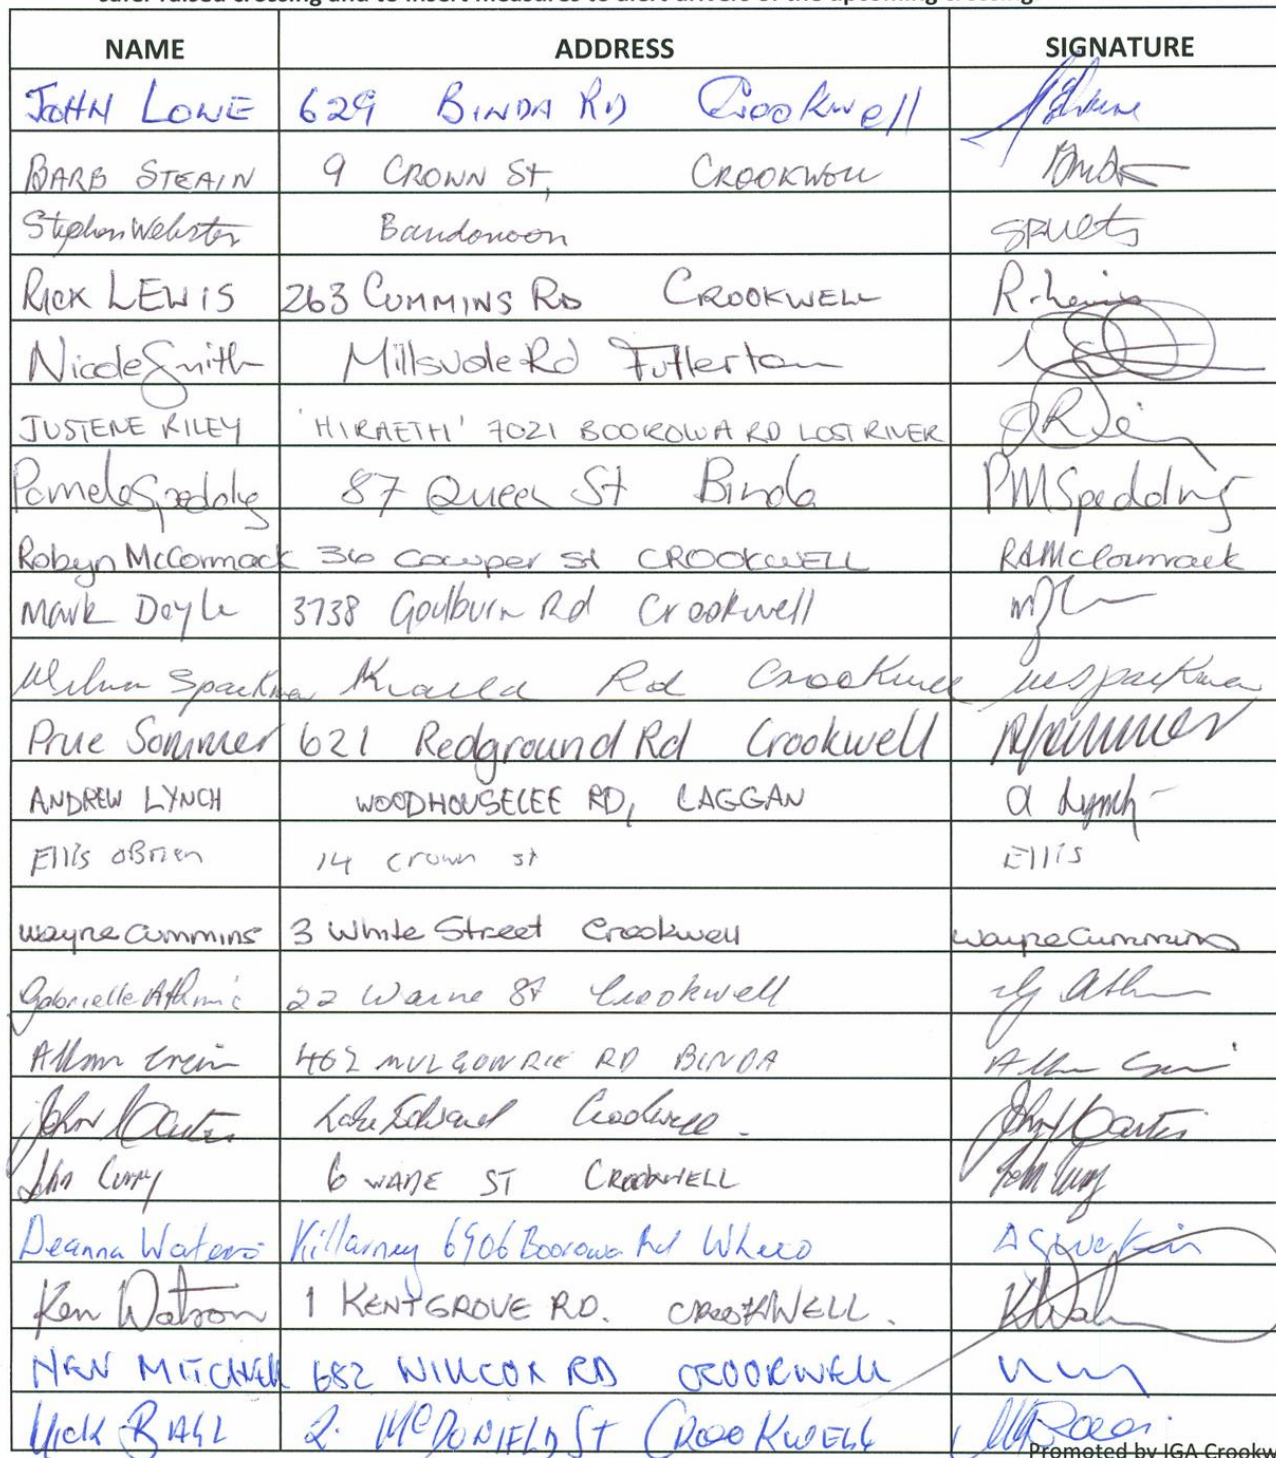 safer raised crossing and to insert measures to alert drivers of the upcoming crossing.
NAME ADDRESS SIGNATURE
JOHN LOWE 629 BINDA RD Crookwell
BARB STEAIN 9 CROWN St, CROOKWELL
Stephen Webster Bundanoon
RICK LEWIS 263 CUMMINS RD CROOKWELL R. Lewis
Nicole Smith Millsvale Rd Fullerton
JUSTENE RILEY 'HIRAETH' 7021 BOOROWA RD LOST RIVER
Pamela Spedding 87 Queen St Binda PM Spedding
Robyn McCormack 36 Cowper St CROOKWELL RAMcCormack
Mark Doyle 3738 Goulburn Rd Crookwell
Sparkman Rd Crookwell
Prue Sommer 621 Redground Rd Crookwell
ANDREW LYNCH WOODHOUSELEE RD, LAGGAN a Lynch
Ellis OBrien 14 crown st Ellis
wayne cummins 3 White Street Crookwell wayne Cummins
Gabrielle 22 Warne St Crookwell
462 RD BINDA
John Carter Crookwell John Carter
John Curry 6 WADE ST CROOKWELL John Curry
Deanna Killarney 6906 Boorowa Rd
Ken Watson 1 KENTGROVE RD. CROOKWELL.
MITCHELL 682 WILLCOX RD CROOKWELL
2. ST CROOKWELL
Promoted by IGA Crookw